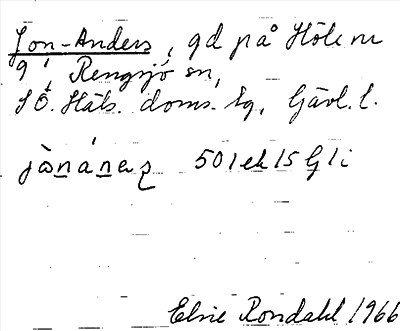 Jon-Anders, gd på Höle nr
9, Rengsjö sn,
SÖ. Häls. doms. tg, Gävl. l.
jònánaʂ 50 1 ek 15 G 1 i
Elsie Rondahl 1966